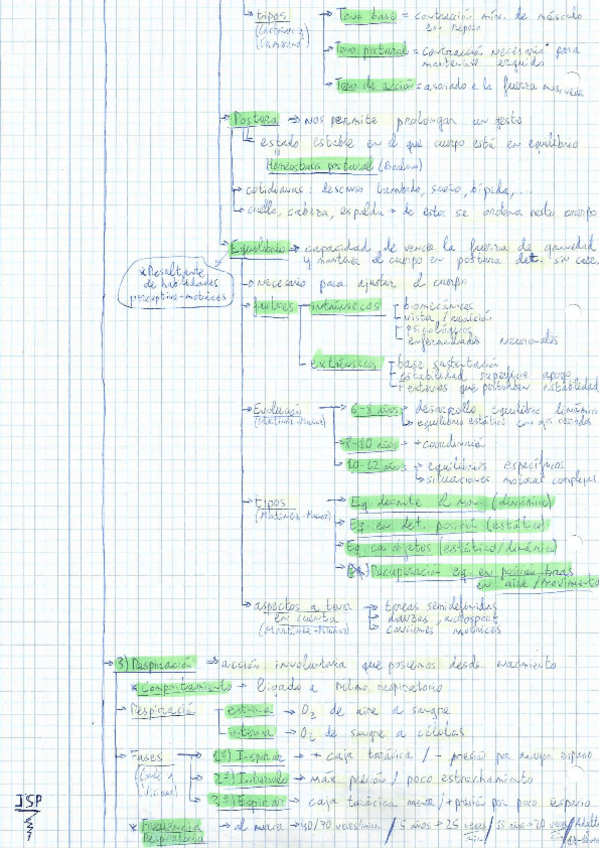 tipos → Tono base = contracción mín. de músculo
en reposo
→ Tono postural = contracción necesaria para
mantenerse erguido
→ Tono de acción = asociado a la fuerza
Postura → nos permite prolongar un gesto
estado estable en el que cuerpo está en equilibrio
Homeostasis postural
→ cotidianas: descanso, sueño, bípeda, ...
→ cuello, cabeza, espalda → de esto se ordena resto cuerpo
Equilibrio → capacidad de vencer la fuerza de gravedad
y mantener el cuerpo en postura det. sin caer
* Resultante
de habilidades
perceptivo-motrices
→ necesario para ajustar el cuerpo
factores intrínsecos biomecánicos
vista / audición
psicológicos
enfermedades
extrínsecos base sustentación
estabilidad superficie apoyo
externos que estabilidad
Evolución → 6-8 años → desarrollo equilibrio dinámico
→ equilibrio estático con ojos cerrados
→ 8-10 años → + coordinación
→ 10-12 años → equilibrios específicos
→ situaciones motoras complejas
tipos → Eq. durante el mov. (dinámico)
→ Eq. en det. posición (estático)
→ Eq. con objetos (estático/dinámico)
→ Recuperación eq. en posición tras
en aire / movimiento
aspectos a tener → tareas semidefinidas
en cuenta → danzas,
→ canciones motrices
→ 3) Respiración → acción involuntaria que poseemos desde nacimiento
* Comportamiento → ligado a ritmo respiratorio
→ Respiración externa → O₂ de aire a sangre
interna → O₂ de sangre a células
→ Fases → 1º) Inspirar → + caja torácica / - presión por mayor espacio
→ 2º) Intervalo → máx. presión / poco estrechamiento
→ 3º) Espirar → caja torácica menor / + presión por poco espacio
JSP
* Frecuencia → al nacer → 40/70 veces/min / 5 años → 25 veces/min / 15 años → 20 veces/min / Adulto
Respiratoria